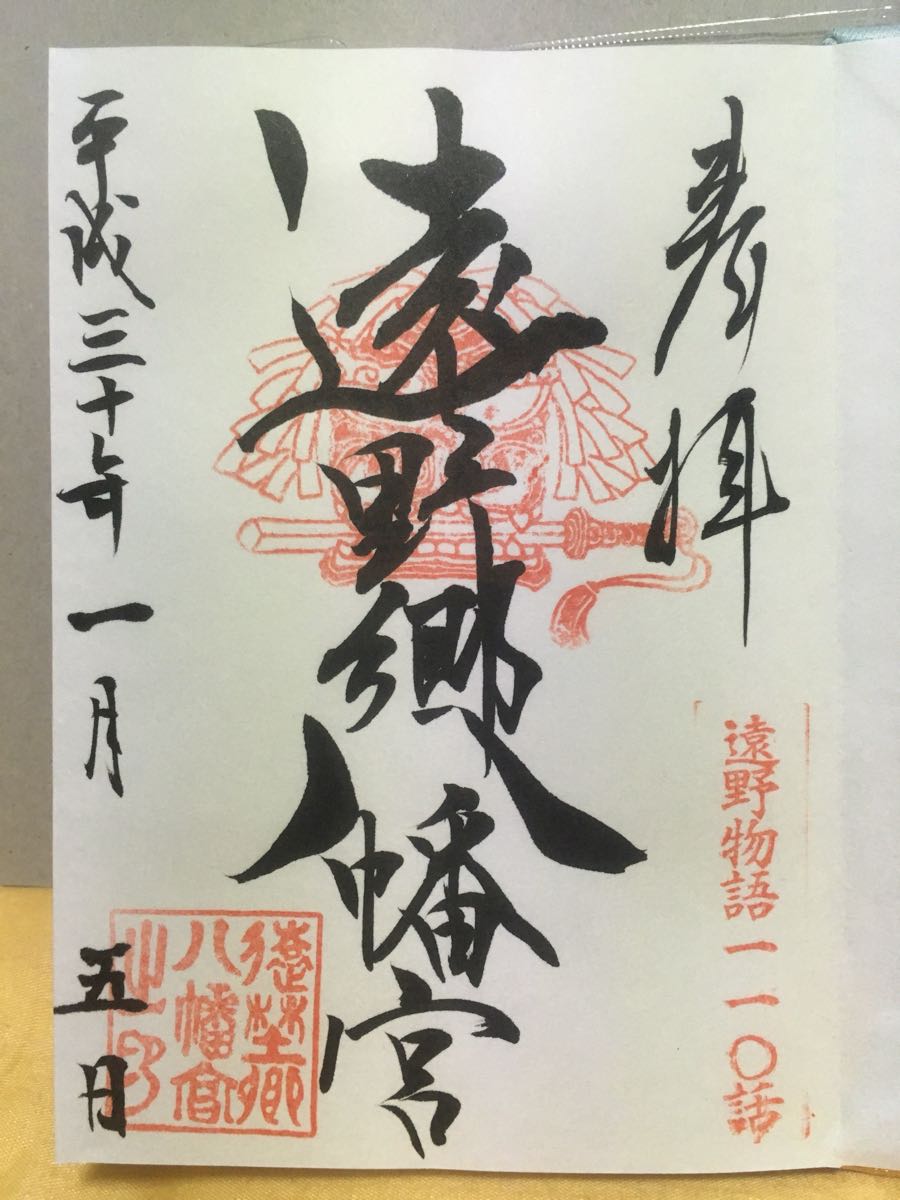 奉拝
遠野物語一一〇話
遠野郷八幡宮
平成三十年一月五日
遠野郷
八幡宮
之印